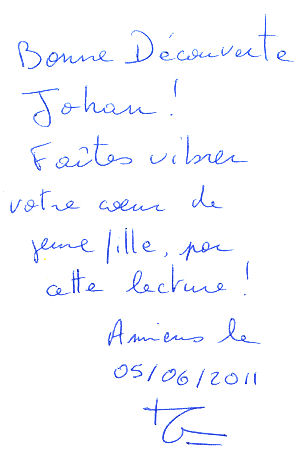 Bonne Découverte
Johan !
Faîtes vibrer
votre cœur de
jeune fille, par
cette lecture !
Amiens le
05/06/2011